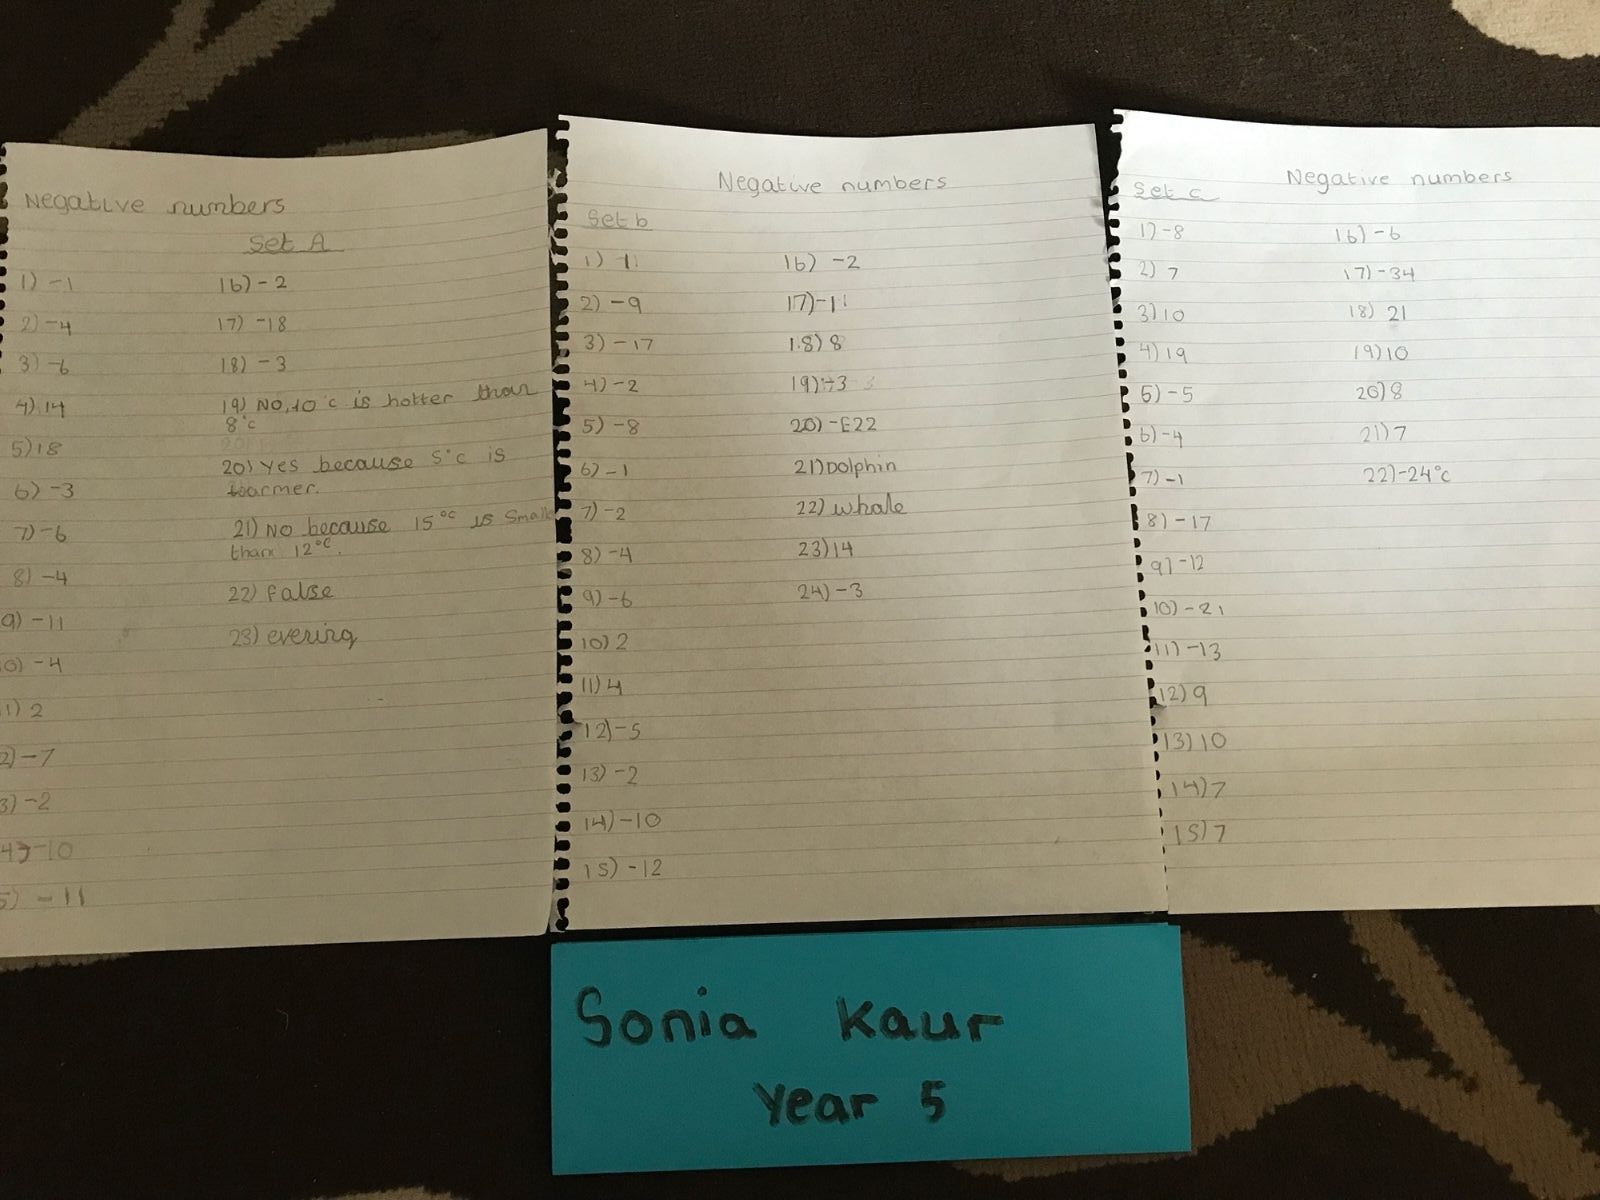 Negative numbers
Set A
1) -1
2) -4
3) -6
4) 14
5) 18
6) -3
7) -6
8) -4
9) -11
0) -4
1) 2
2) -7
3) -2
4) -10
5) -11
16) -2
17) -18
18) -3
19) No, 10°c is hotter than
8°c
20) Yes because 5°c is
warmer.
21) No because 15°c is Small
than 12°c.
22) False
23) evening
Negative numbers
Set b
1)
2) -9
3) -17
4) -2
5) -8
6) -1
7) -2
8) -4
9) -6
10) 2
11) 4
12) -5
13) -2
14) -10
15) -12
16) -2
17)
18) 8
19)
20) -£22
21) Dolphin
22) whale
23) 14
24) -3
Negative numbers
Set c
1) -8
2) 7
3) 10
4) 19
5) -5
6) -4
7) -1
8) -17
9) -12
10) -21
11) -13
12) 9
13) 10
14) 7
15) 7
16) -6
17) -34
18) 21
19) 10
20) 8
21) 7
22) -24°c
Sonia Kaur
Year 5